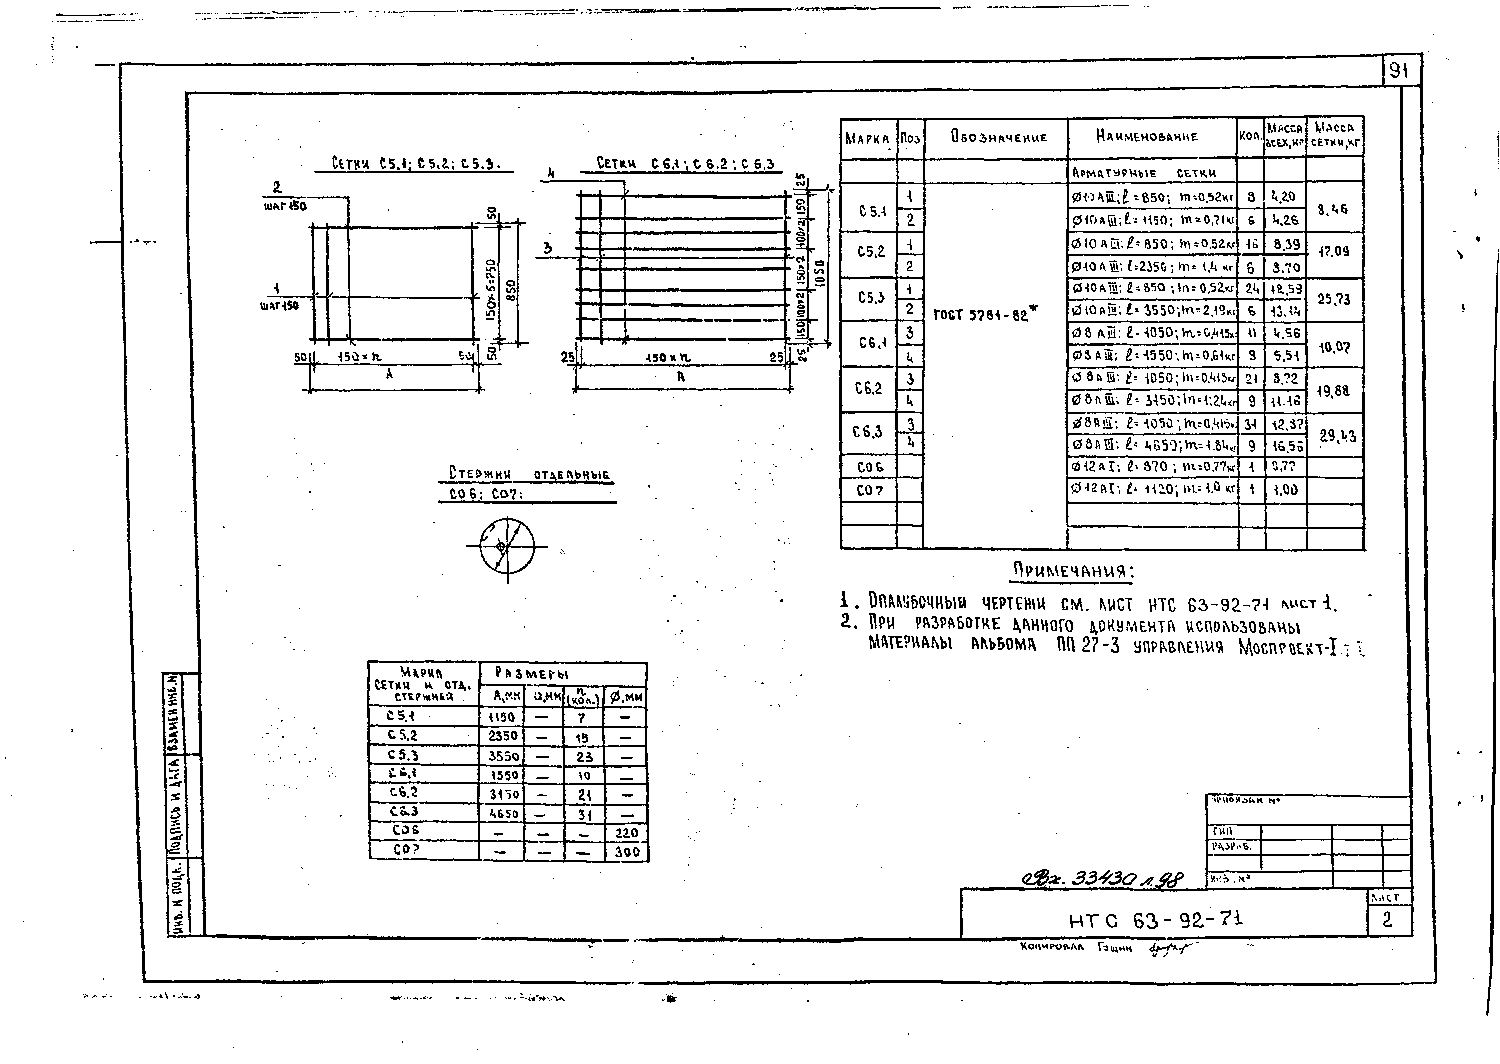 91
Сетки С5.1; С5.2; С5.3.
2
шаг 150
1
шаг 150
50
150×5=750
850
50
50
150×n
50
А
Сетки С6.1; С6.2; С6.3
4
3
25
150
100×2
150×2
100×2
150
25
1050
25
150×n
25
А
Стержни отдельные
С06; С07:
Марка Поз Обозначение Наименование Кол. Масса всех,кг Масса сетки,кг
Арматурные сетки
ГОСТ 5781-82*
С5.1 1 Ø10АIII; ℓ=850; m=0,52кг 8 4,20 8,46
2 Ø10АIII; ℓ=1150; m=0,71кг 6 4,26
С5.2 1 Ø10АIII; ℓ=850; m=0,52кг 16 8,39 17,09
2 Ø10АIII; ℓ=2350; m=1,4 кг 6 8,70
С5.3 1 Ø10АIII; ℓ=850; m=0,52кг 24 12,59 25,73
2 Ø10АIII; ℓ=3550; m=2,19кг 6 13,14
С6.1 3 Ø8АIII; ℓ=1050; m=0,415кг 11 4,56 10,07
4 Ø8АIII; ℓ=1550; m=0,61кг 9 5,51
С6.2 3 Ø8АIII; ℓ=1050; m=0,415кг 21 8,72 19,88
4 Ø8АIII; ℓ=3150; m=1,24кг 9 11,16
С6.3 3 Ø8АIII; ℓ=1050; m=0,415кг 31 12,87 29,43
4 Ø8АIII; ℓ=4650; m=1,84кг 9 16,56
С06 Ø12АI; ℓ=870; m=0,77кг 1 0,77
С07 Ø12АI; ℓ=1120; m=1,0 кг 1 1,00
Примечания:
1. Опалубочный чертежи см. лист НТС 63-92-71 лист 1.
2. При разработке данного документа использованы
материалы альбома ПП 27-3 управления Моспроект-1
Марка сетки и отд. стержней Размеры
А,мм а,мм n (кол.) Ø,мм
С5.1 1150 — 7 —
С5.2 2350 — 15 —
С5.3 3550 — 23 —
С6.1 1550 — 10 —
С6.2 3150 — 21 —
С6.3 4650 — 31 —
С06 — — — 220
С07 — — — 300
Взамен инв.N
Подпись и дата
Инв. N подл.
Привязан №
ГИП
Разраб.
Инв. №
Вх. 33430 л.98
НТС 63-92-71
Лист
2
Копировал